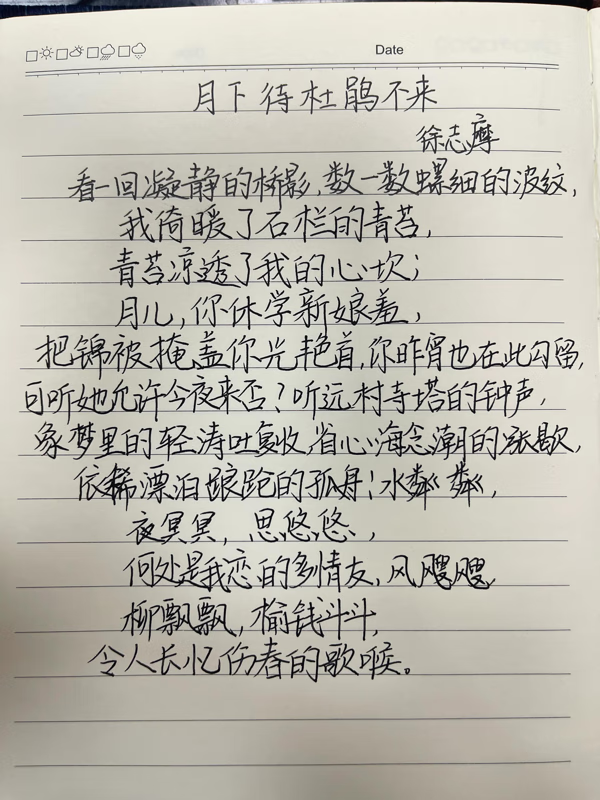 Date
月下待杜鹃不来
徐志摩
看一回凝静的桥影，数一数螺细的波纹，
我倚暖了石栏的青苔，
青苔凉透了我的心坎；
月儿，你休学新娘羞，
把锦被掩盖你光艳首，你昨宵也在此勾留，
可听她允许今夜来否？听远村寺塔的钟声，
象梦里的轻涛吐复收，省心海念潮的涨歇，
依稀漂泊踉跄的孤舟！水粼粼，
夜冥冥，思悠悠，
何处是我恋的多情友，风飕飕，
柳飘飘，榆钱斗斗，
令人长忆伤春的歌喉。